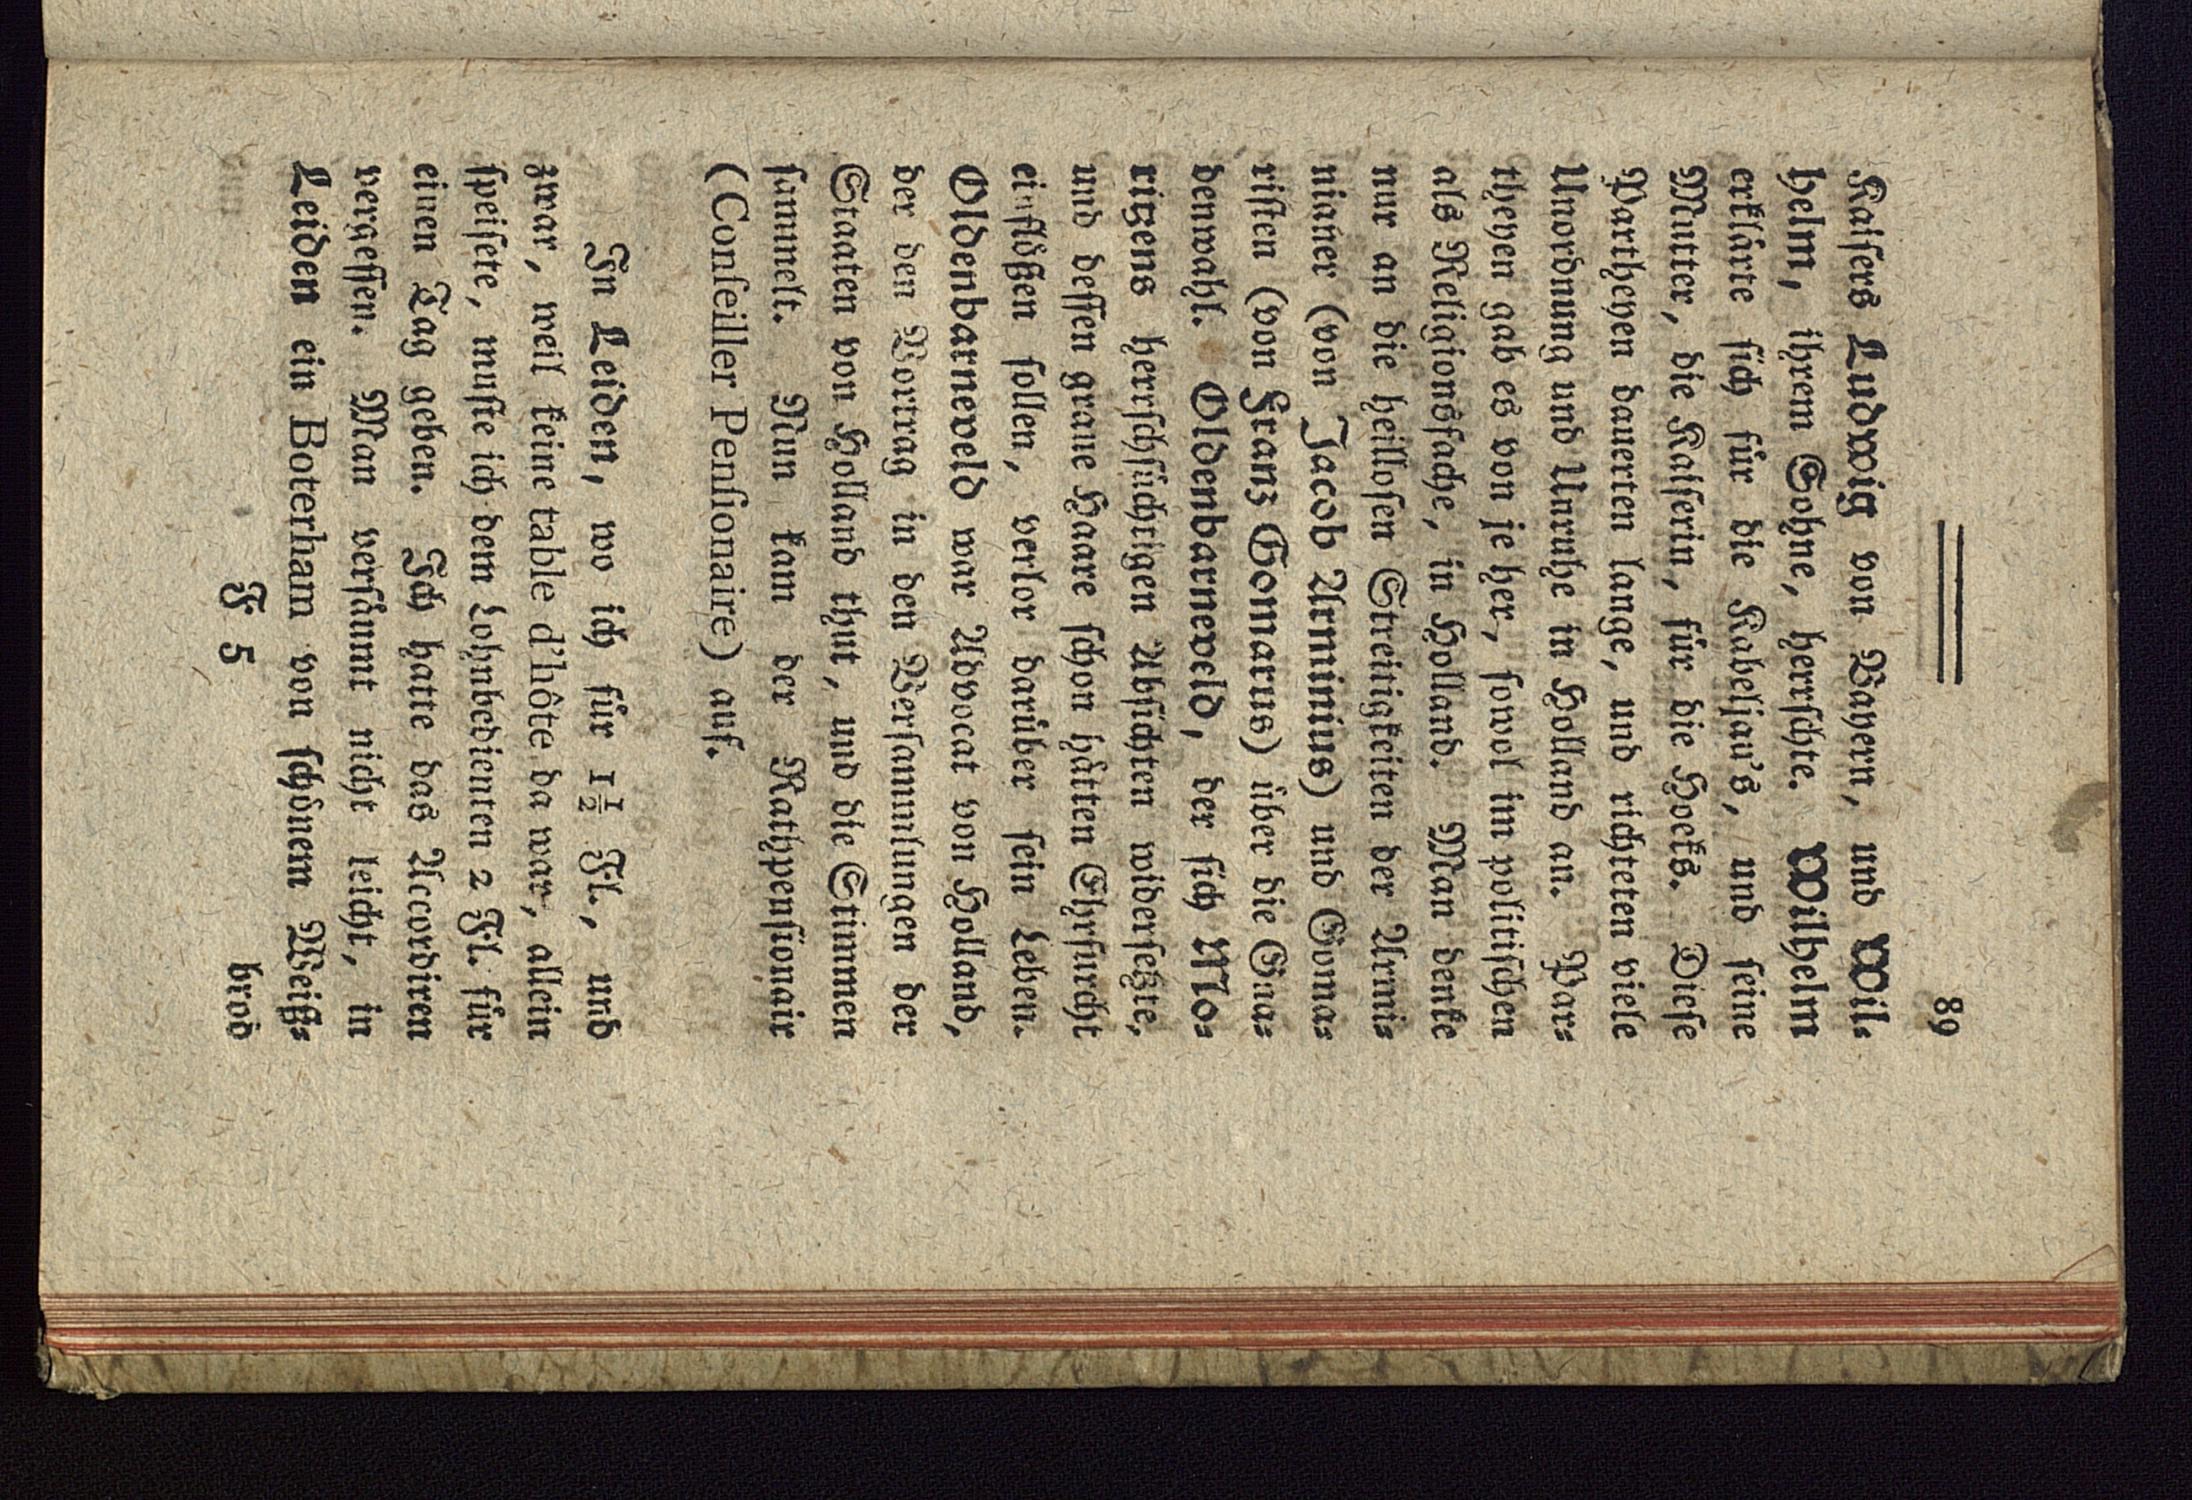 89
Kaisers Ludwig von Bayern, und Wil-
helm, ihrem Sohne, herrschte. Wilhelm
erklärte sich für die Kabeljau's, und seine
Mutter, die Kaiserin, für die Hoeks. Diese
Partheyen dauerten lange, und richteten viele
Unordnung und Unruhe in Holland an. Par-
theyen gab es von je her, sowol im politischen
als Religionsfache, in Holland. Man denke
nur an die heillosen Streitigkeiten der Armi-
nianer (von Jacob Arminius) und Goma-
risten (von Franz Gomarus) über die Gna-
denwahl. Oldenbarneveld, der sich Mo-
rizens herrschsüchtigen Absichten widersetzte,
und dessen graue Haare schon hätten Ehrfurcht
einflößen sollen, verlor darüber sein Leben.
Oldenbarneveld war Advocat von Holland,
der den Vortrag in den Versammlungen der
Staaten von Holland thut, und die Stimmen
sammelt. Nun kam der Rathpensionair
(Conseiller Pensionaire) auf.
In Leiden, wo ich für 1½ Fl., und
zwar, weil keine table d'hôte da war, allein
speisete, muste ich dem Lohnbedienten 2 Fl. für
einen Tag geben. Ich hatte das Accordiren
vergessen. Man versäumt nicht leicht, in
Leiden ein Boterham von schönem Weiß-
F 5
brod